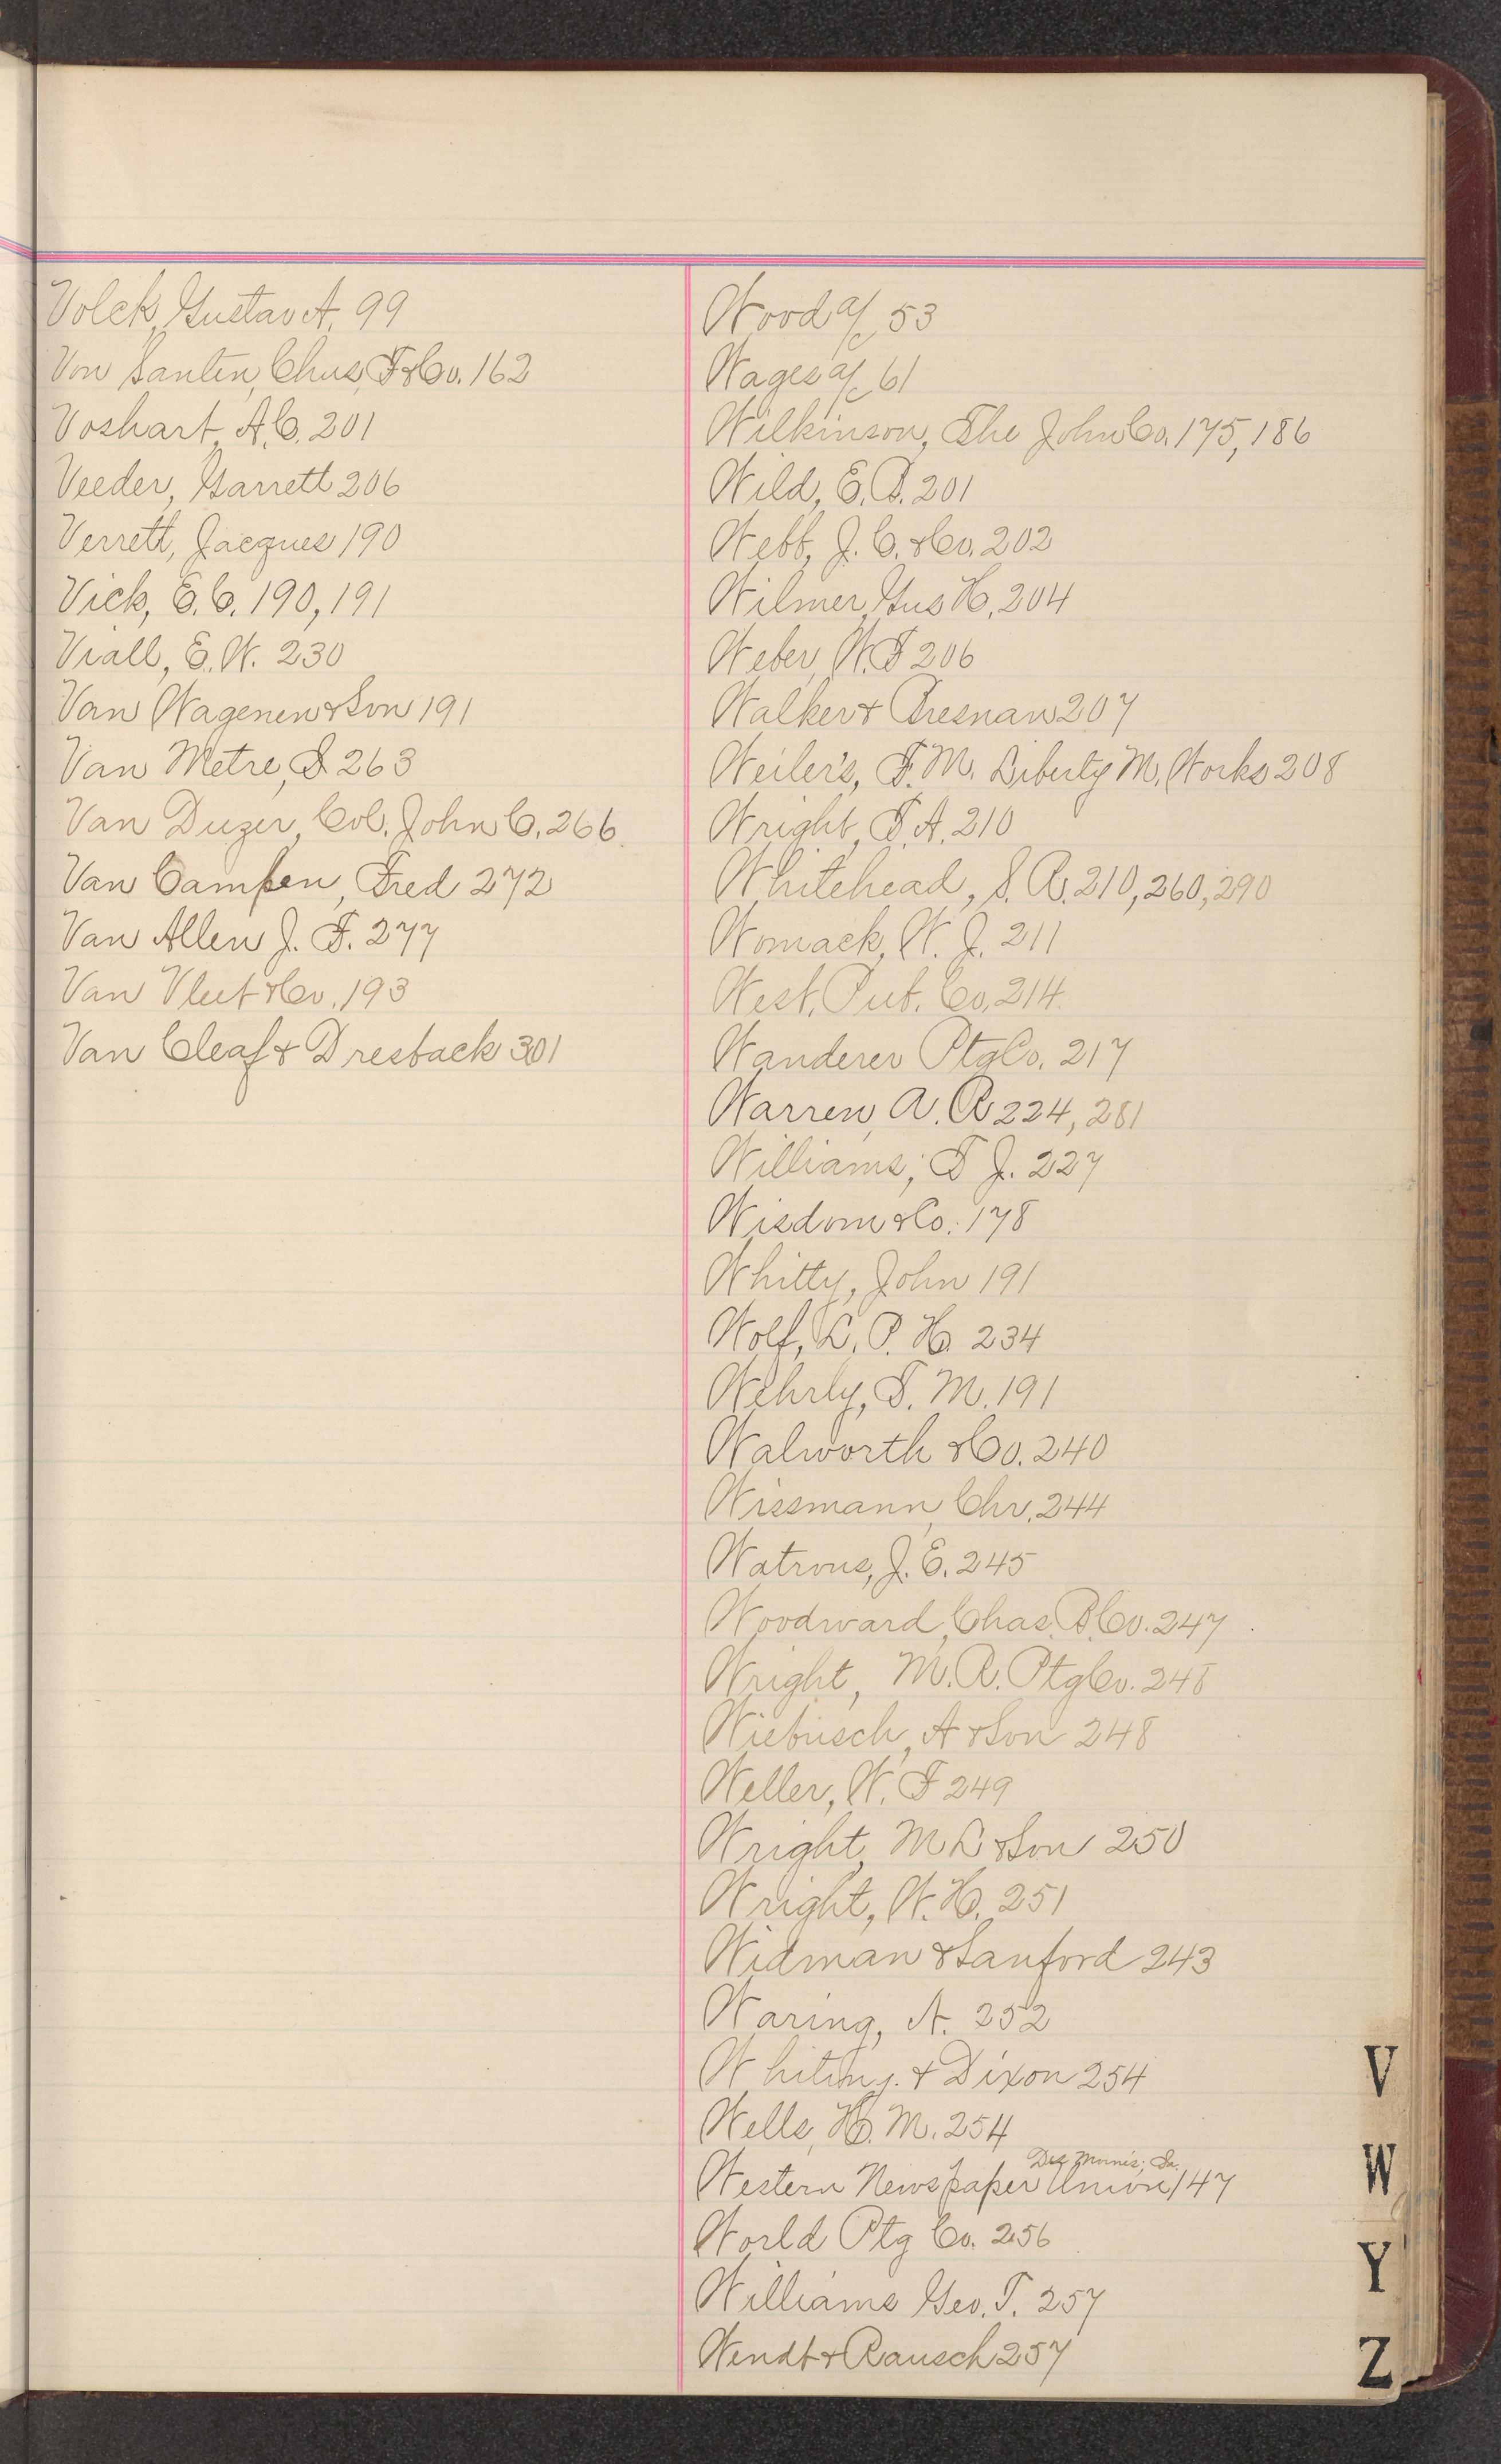 Volck, Gustav A. 99
Von Santen, Chus, F & Co. 162
Voshart, A.C. 201
Veeder, Garrett 206
Verrett, Jacques 190
Vick, E.C. 190, 191
Viall, E.W. 230
Van Wagenen & Son 191
Van Metre, S 263
Van Duzer, Col. John C. 266
Van Campen, Fred 272
Van Allen J. F. 277
Van Vleet & Co. 193
Van Cleaf & Dresback 301
Wood a/c 53
Wages a/c 61
Wilkinson, The John Co. 175, 186
Wild, E.B. 201
Webb, J.C. & Co. 202
Wilmer, Gus H. 204
Weber, W.F 206
Walker & Bresnan 207
Weiler's, F.M. Liberty M. Works 208
Wright, T.A. 210
Whitehead, S. R. 210, 260, 290
Womack, W. J. 211
West. Pub. Co. 214.
Wanderer Ptg Co. 217
Warren, A. R 224, 281
Williams, T J. 227
Wisdom & Co. 178
Whitty, John 191
Wolf, L. P. H. 234
Wehrly, T. M. 191
Walworth & Co. 240
Wissmann, Chr. 244
Watrous, J. E. 245
Woodward, Chas. B. Co. 247
Wright, M.R. Ptg Co. 248
Wiebusch, A & Son 248
Weller, W. F 249
Wright, M L & Son 250
Wright, W.H. 251
Widman & Sanford 243
Waring, A. 252
Whiting. & Dixon 254
Wells, H. M. 254
Des Moines, Ia.
Western Newspaper Union 147
World Ptg Co. 256
Williams Geo. T. 257
Wendt & Rausch 257
V
W
Y
Z